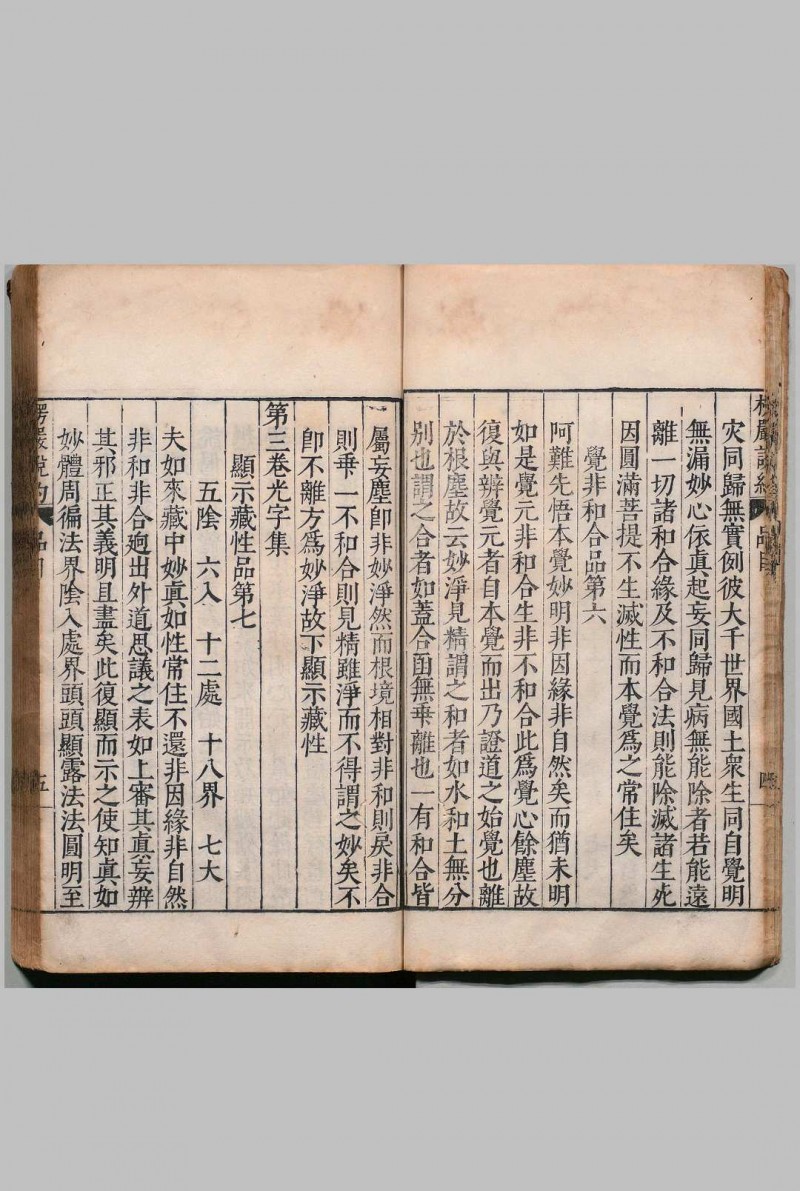 灾同歸無實例彼大千世界國土衆生同自覺明
無漏妙心依眞起妄同歸見病無能除者若能遠
離一切諸和合緣及不和合法則能除滅諸生死
因圓滿菩提不生滅性而本覺爲之常住矣
覺非和合品第六
阿難先悟本覺妙明非因緣非自然矣而猶未明
如是覺元非和合生非不和合此爲覺心餘塵故
復與辨覺元者自本覺而出乃證道之始覺也離
於根塵故云妙淨見精謂之和者如水和土無分
别也謂之合者如蓋合函無乖離也一有和合皆
屬妄塵卽非妙淨然而根境相對非和則戾非合
則乖一不和合則見精雖淨而不得謂之妙矣不
卽不離方爲妙淨故下顯示藏性
第三卷光字集
顯示藏性品第七
五陰 六入 十二處 十八界 七大
夫如來藏中妙眞如性常住不還非因緣非自然
非和非合逈出外道思議之表如上審其眞妄辨
其邪正其義明且盡矣此復顯而示之使知眞如
妙體周徧法界陰入處界頭頭顯露法法圓明至
楞嚴說約 品目 五